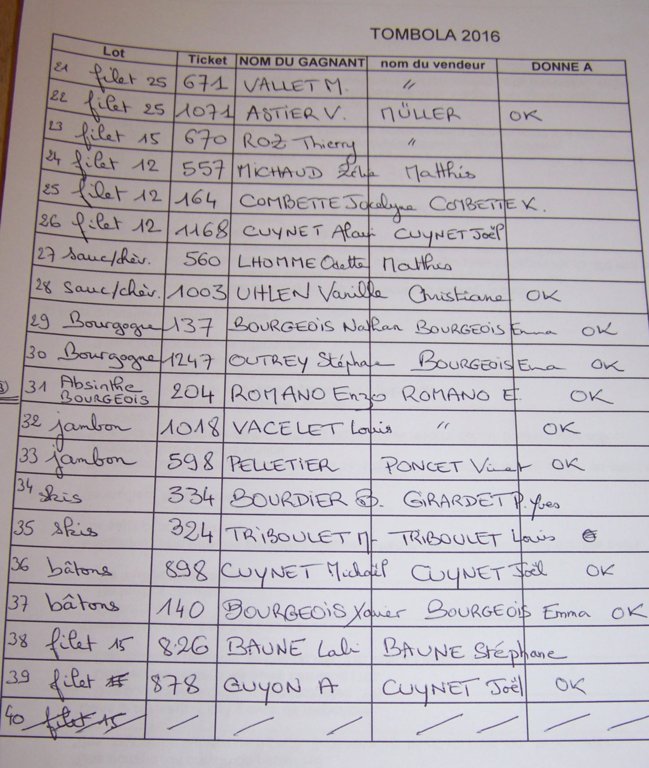 TOMBOLA 2016
Lot Ticket NOM DU GAGNANT nom du vendeur DONNE A
21 filet 25 671 VALLET M. "
22 filet 25 1071 ASTIER V. MÜLLER OK
23 filet 15 670 ROZ Thierry "
24 filet 12 557 MICHAUD Matthis
25 filet 12 164 COMBETTE Jocelyne COMBETTE K.
26 filet 12 1168 CUYNET Alain CUYNET Joël
27 sauc/chèv. 560 LHOMME Odette Matthis
28 sauc/chèv. 1003 UHLEN Vanille Christiane OK
29 Bourgogne 137 BOURGEOIS Nathan BOURGEOIS Emma OK
30 Bourgogne 1247 OUTREY Stéphane BOURGEOIS Emma OK
31 Absinthe BOURGEOIS 204 ROMANO Enzo ROMANO E. OK
32 jambon 1018 VACELET Louis " OK
33 jambon 598 PELLETIER PONCET Vincent OK
34 skis 334 BOURDIER B. GIRARDET P. Yves
35 skis 324 TRIBOULET M. TRIBOULET Louis
36 bâtons 898 CUYNET Michaël CUYNET Joël OK
37 bâtons 140 BOURGEOIS Xavier BOURGEOIS Emma OK
38 filet 15 826 BAUNE Lali BAUNE Stéphane
39 filet 878 GUYON A CUYNET Joël OK
40 filet 15 / / / / / / /